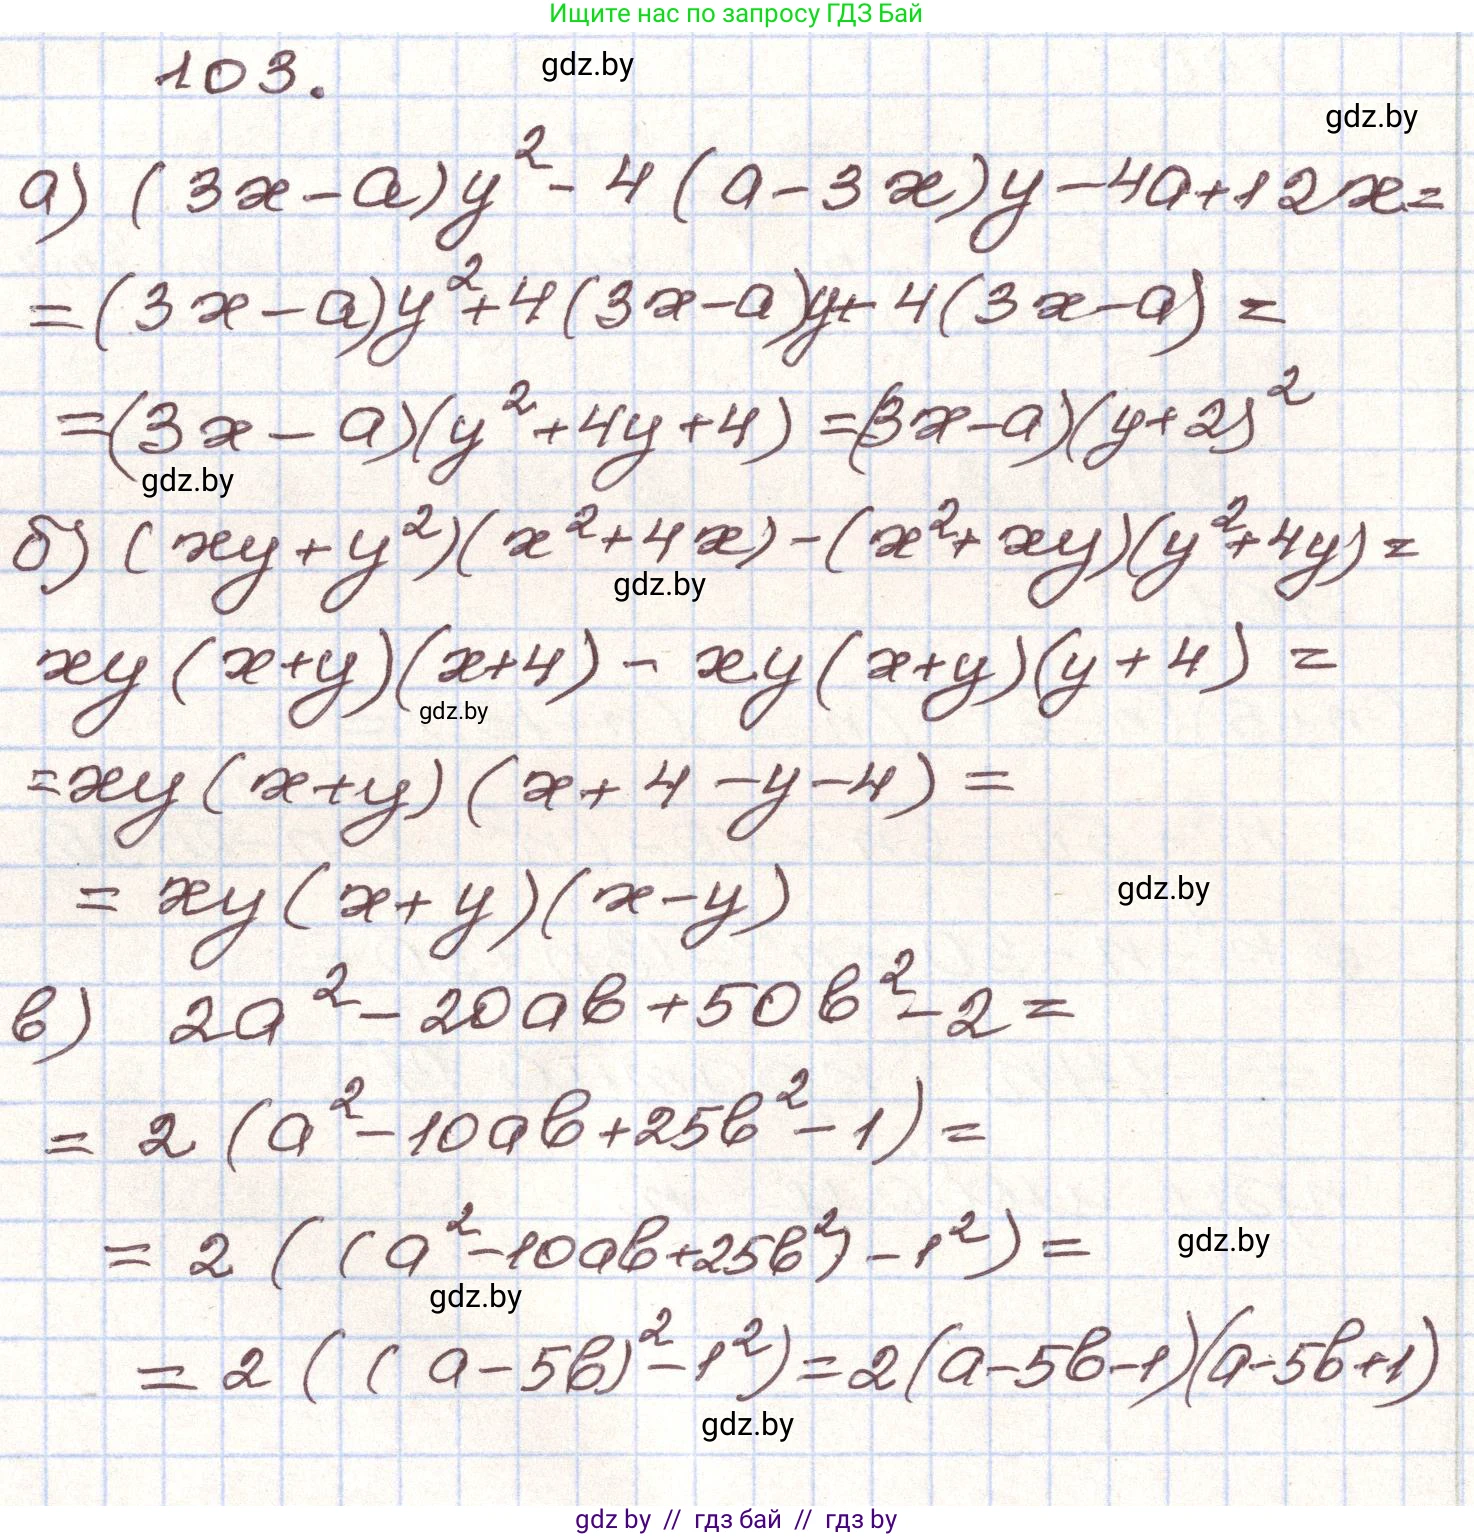 Ищите нас по запросу ГДЗ Бай
103.
gdz.by
gdz.by
а) (3x-a)y²-4(a-3x)y-4a+12x=
=(3x-a)y²+4(3x-a)y+4(3x-a)=
=(3x-a)(y²+4y+4)=(3x-a)(y+2)²
gdz.by
б) (xy+y²)(x²+4x)-(x²+xy)(y²+4y)=
gdz.by
xy(x+y)(x+4)-xy(x+y)(y+4)=
gdz.by
=xy(x+y)(x+4-y-4)=
=xy(x+y)(x-y)
gdz.by
в) 2a²-20ab+50b²-2=
=2(a²-10ab+25b²-1)=
=2((a²-10ab+25b²)-1²)=
gdz.by
gdz.by
=2((a-5b)²-1²)=2(a-5b-1)(a-5b+1)
gdz.by
gdz by // гдз бай // гдз by